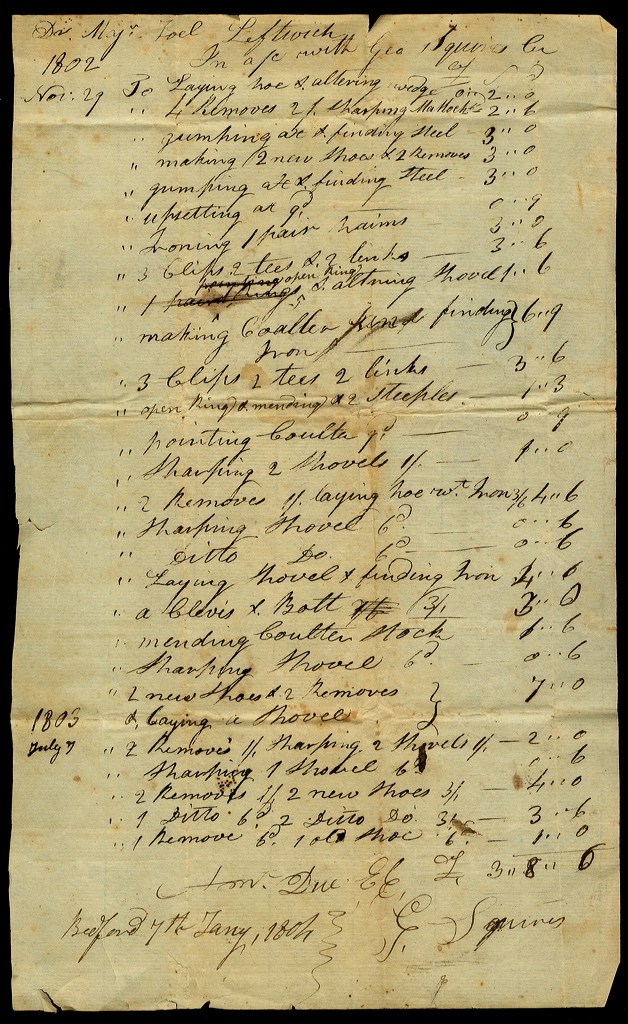 Dr. Majr. Joel Leftwich
1802 In a/c with Geo Squires Cr
Nov. 29 To Laying hoe & altering wedge 2 " 0
" 4 Removes 2/. Sharping Mattock 2 " 6
" jumping axe & finding Steel - 3 " 0
" making 2 new Shoes & 2 Removes 3 " 0
" jumping axe & finding Steel - 3 " 0
" upsetting ax 9d 0 " 9
" Ironing 1 pair haims 3 " 0
" 3 Clips 2 tees & 2 links - 3 " 6
open Ring
" 1 & altring Shovel 1 " 6
" making Coalter finding } 6 " 9
Iron
" 3 Clips 2 tees 2 links - 3 " 6
" open Ring & mending & 2 Steeples 1 " 3
" pointing Coulter 9d - 0 " 9
" Sharping 2 Shovels 1/. - 1 " 0
" 2 Removes 1/. laying hoe wt. Iron 3/6 4 " 6
" Sharping Shovel 6d. - 0 " 6
" Ditto Do. 6d - 0 " 6
" Laying Shovel & finding Iron 4 " 6
" a Clevis & Bolt 3/. 3 " 0
" mending Coulter Stock 1 " 6
" Sharping Shovel 6d. - 0 " 6
" 2 new Shoes & 2 Removes } 7 " 0
1803 & Laying a Shovel }
July 7 " 2 Removes 1/. Sharping 2 Shovels 1/. - 2 " 0
" Sharping 1 Shovel 6d " 6
" 2 Removes 1/. 2 new Shoes 3/. - 4 " 0
" 1 Ditto 6d. 2 Ditto Do. 3/. - 3 " 6
" 1 Remove 6d. 1 old Shoe 6. - 1 " 0
Amt. Due EE, £ 3 " 8 " 6
Bedford 7th Jany, 1804 G. Squires